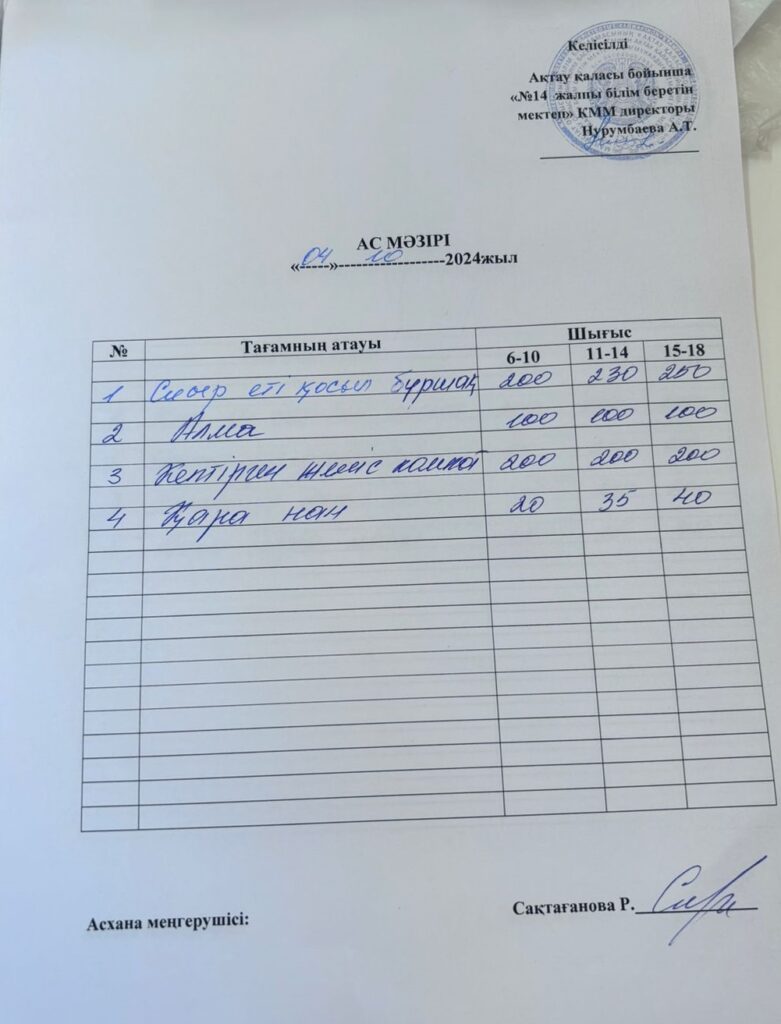 Келісілді
Ақтау қаласы бойынша
«№14 жалпы білім беретін
мектеп» КММ директоры
Нурумбаева А.Т.
АС МӘЗІРІ
«04» 10 2024жыл
№ Тағамның атауы Шығыс
6-10 11-14 15-18
1 Сиыр еті қосып бұршақ 200 230 250
2 Алма 100 100 100
3 Кептірген жеміс компот 200 200 200
4 Қара нан 20 35 40
Асхана меңгерушісі: Сақтағанова Р.